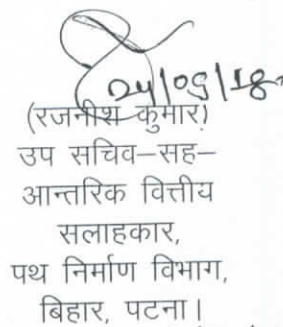 24/05/18
(रजनीश कुमार)
उप सचिव–सह–
आन्तरिक वित्तीय
सलाहकार,
पथ निर्माण विभाग,
बिहार, पटना।